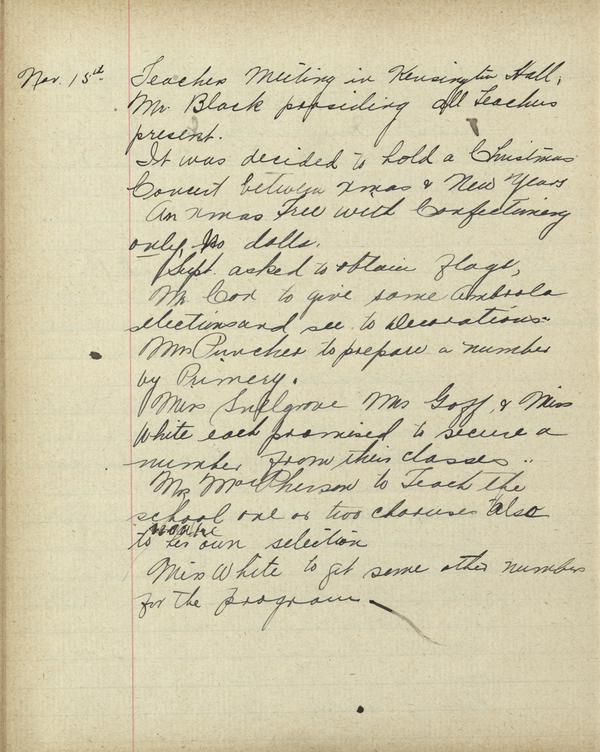 Nov. 15th Teachers Meeting in Kensington Hall,
Mr. Black presiding all Teachers
present.
It was decided to hold a Christmas
Concert between xmas & New Years
An xmas Tree with Confectionery
only, No dolls.
Supt. asked to obtain flags,
Mr Cox to give some ambrola
selections and see to Decorations.
Mrs Puncher to prepare a number
by Primery.
Miss Snelgrove Mrs Goff, & Miss
White each promised to secure a
number from their classes.
MacPherson to Teach the
school one or two choruses also
to her own selection
Miss White to get some other numbers
for the program